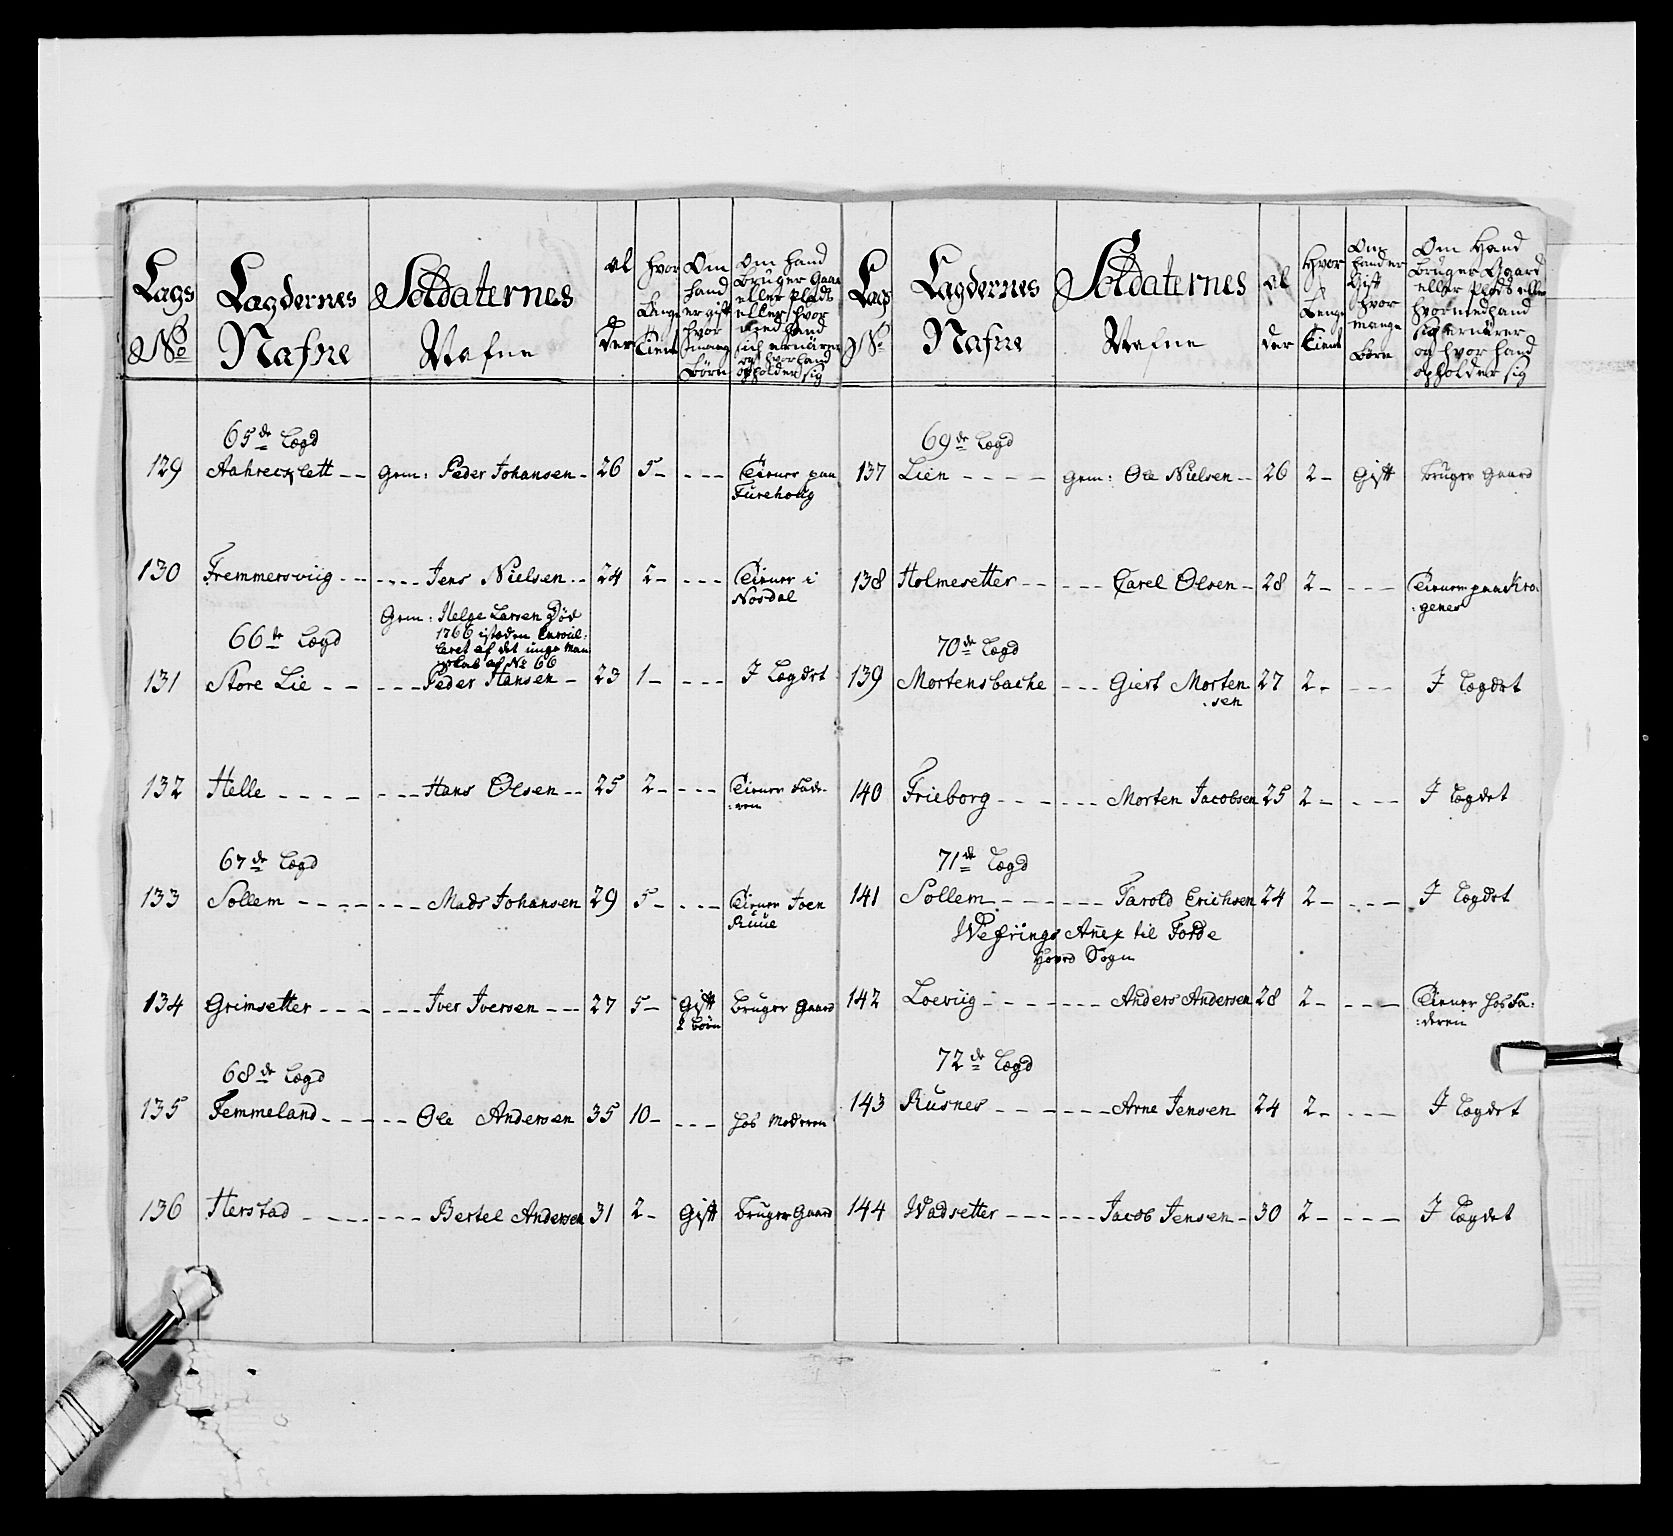 Lags No | Lagdernes Nafne | Soldaternes Nafne | Al der | hvor Længe Tient | Om hand er gift hvor mang Børn | Om hand Bruger Gaar eller plads eller hvor med hand sich ernärer og hvor hand opholder sig
65de Lægd
129 | Aahrecklett | Gem: Peder Johansen | 26 | 5 | --- | Tiener paa Furehoug
130 | Fremmersviig | Jens Nielsen | 24 | 2 | --- | Tiener i Nosdal
Gem: Helge Larsen Død
1766 isteden Enroul:
leret af det unge Man
skab af No 66
66de Lægd
131 | Store Lie | Peder Hansen | 23 | 1 | --- | J Lægdet
132 | Helle | Hans Olsen | 25 | 2 | --- | Tiener Fade:
:ren
67de Lægd
133 | Sollem | Mads Johansen | 29 | 5 | --- | Tiener Joen
Ruue
134 | Grimsetter | Iver Iversen | 27 | 5 | Gift 2 børn | bruger Gaard
68de Lægd
135 | Femmeland | Ole Andersen | 35 | 10 | --- | hos Moderen
136 | Herstad | Bertel Andersen | 31 | 2 | Gift | bruger Gaard
Lags No | Lagdernes Nafne | Soldaternes Nafne | Al der | Hvor Længe Tient | Om hand er Gift hvor mange Børn | Om Hand Bruger Gaard eller plads eller hvormed hand sig ernärer og hvor hand opholder sig
69de Lægd
137 | Lien | Gem: Ole Nielsen | 26 | 2 | Gift | bruger Gaard
138 | Holmesetter | Carel Olsen | 28 | 2 | --- | Tiener paa Kro:
:genes
70de Lægd
139 | Mortensbache | Giert Morten
:sen | 27 | 2 | --- | J Lægdet
140 | Frieborg | Morten Jacobsen | 25 | 2 | --- | J Lægdet
71de Lægd
141 | Sollem | Tarold Erichsen | 24 | 2 | --- | J Lægdet
Wefrings Añex til Førde
hoved Sogn
142 | Loeviig | Anders Andersen | 28 | 2 | --- | Tiener hos Fa:
:deren
72de Lægd
143 | Rusnes | Arne Jensen | 24 | 2 | --- | J Lægdet
144 | Wadsetter | Jacob Jensen | 30 | 2 | --- | J Lægdet